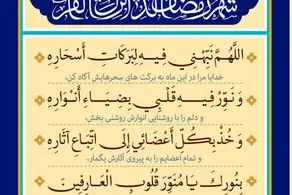 شهر رمضان الذي أنزل فيه القرآن
اللَّهُمَّ نَبِّهْنِي فِيهِ لِبَرَكَاتِ أَسْحَارِهِ
خدایا مرا در این ماه به برکت های سحرهایش آگاه کن،
وَ نَوِّرْ فِيهِ قَلْبِي بِضِيَاءِ أَنْوَارِهِ
و دلم را با روشنایی انوارش روشنی بخش،
وَ خُذْ بِكُلِّ أَعْضَائِي إِلَى اتِّبَاعِ آثَارِهِ
و تمام اعضایم را به پیروی آثارش بگمار،
بِنُورِكَ يَا مُنَوِّرَ قُلُوبِ الْعَارِفِينَ